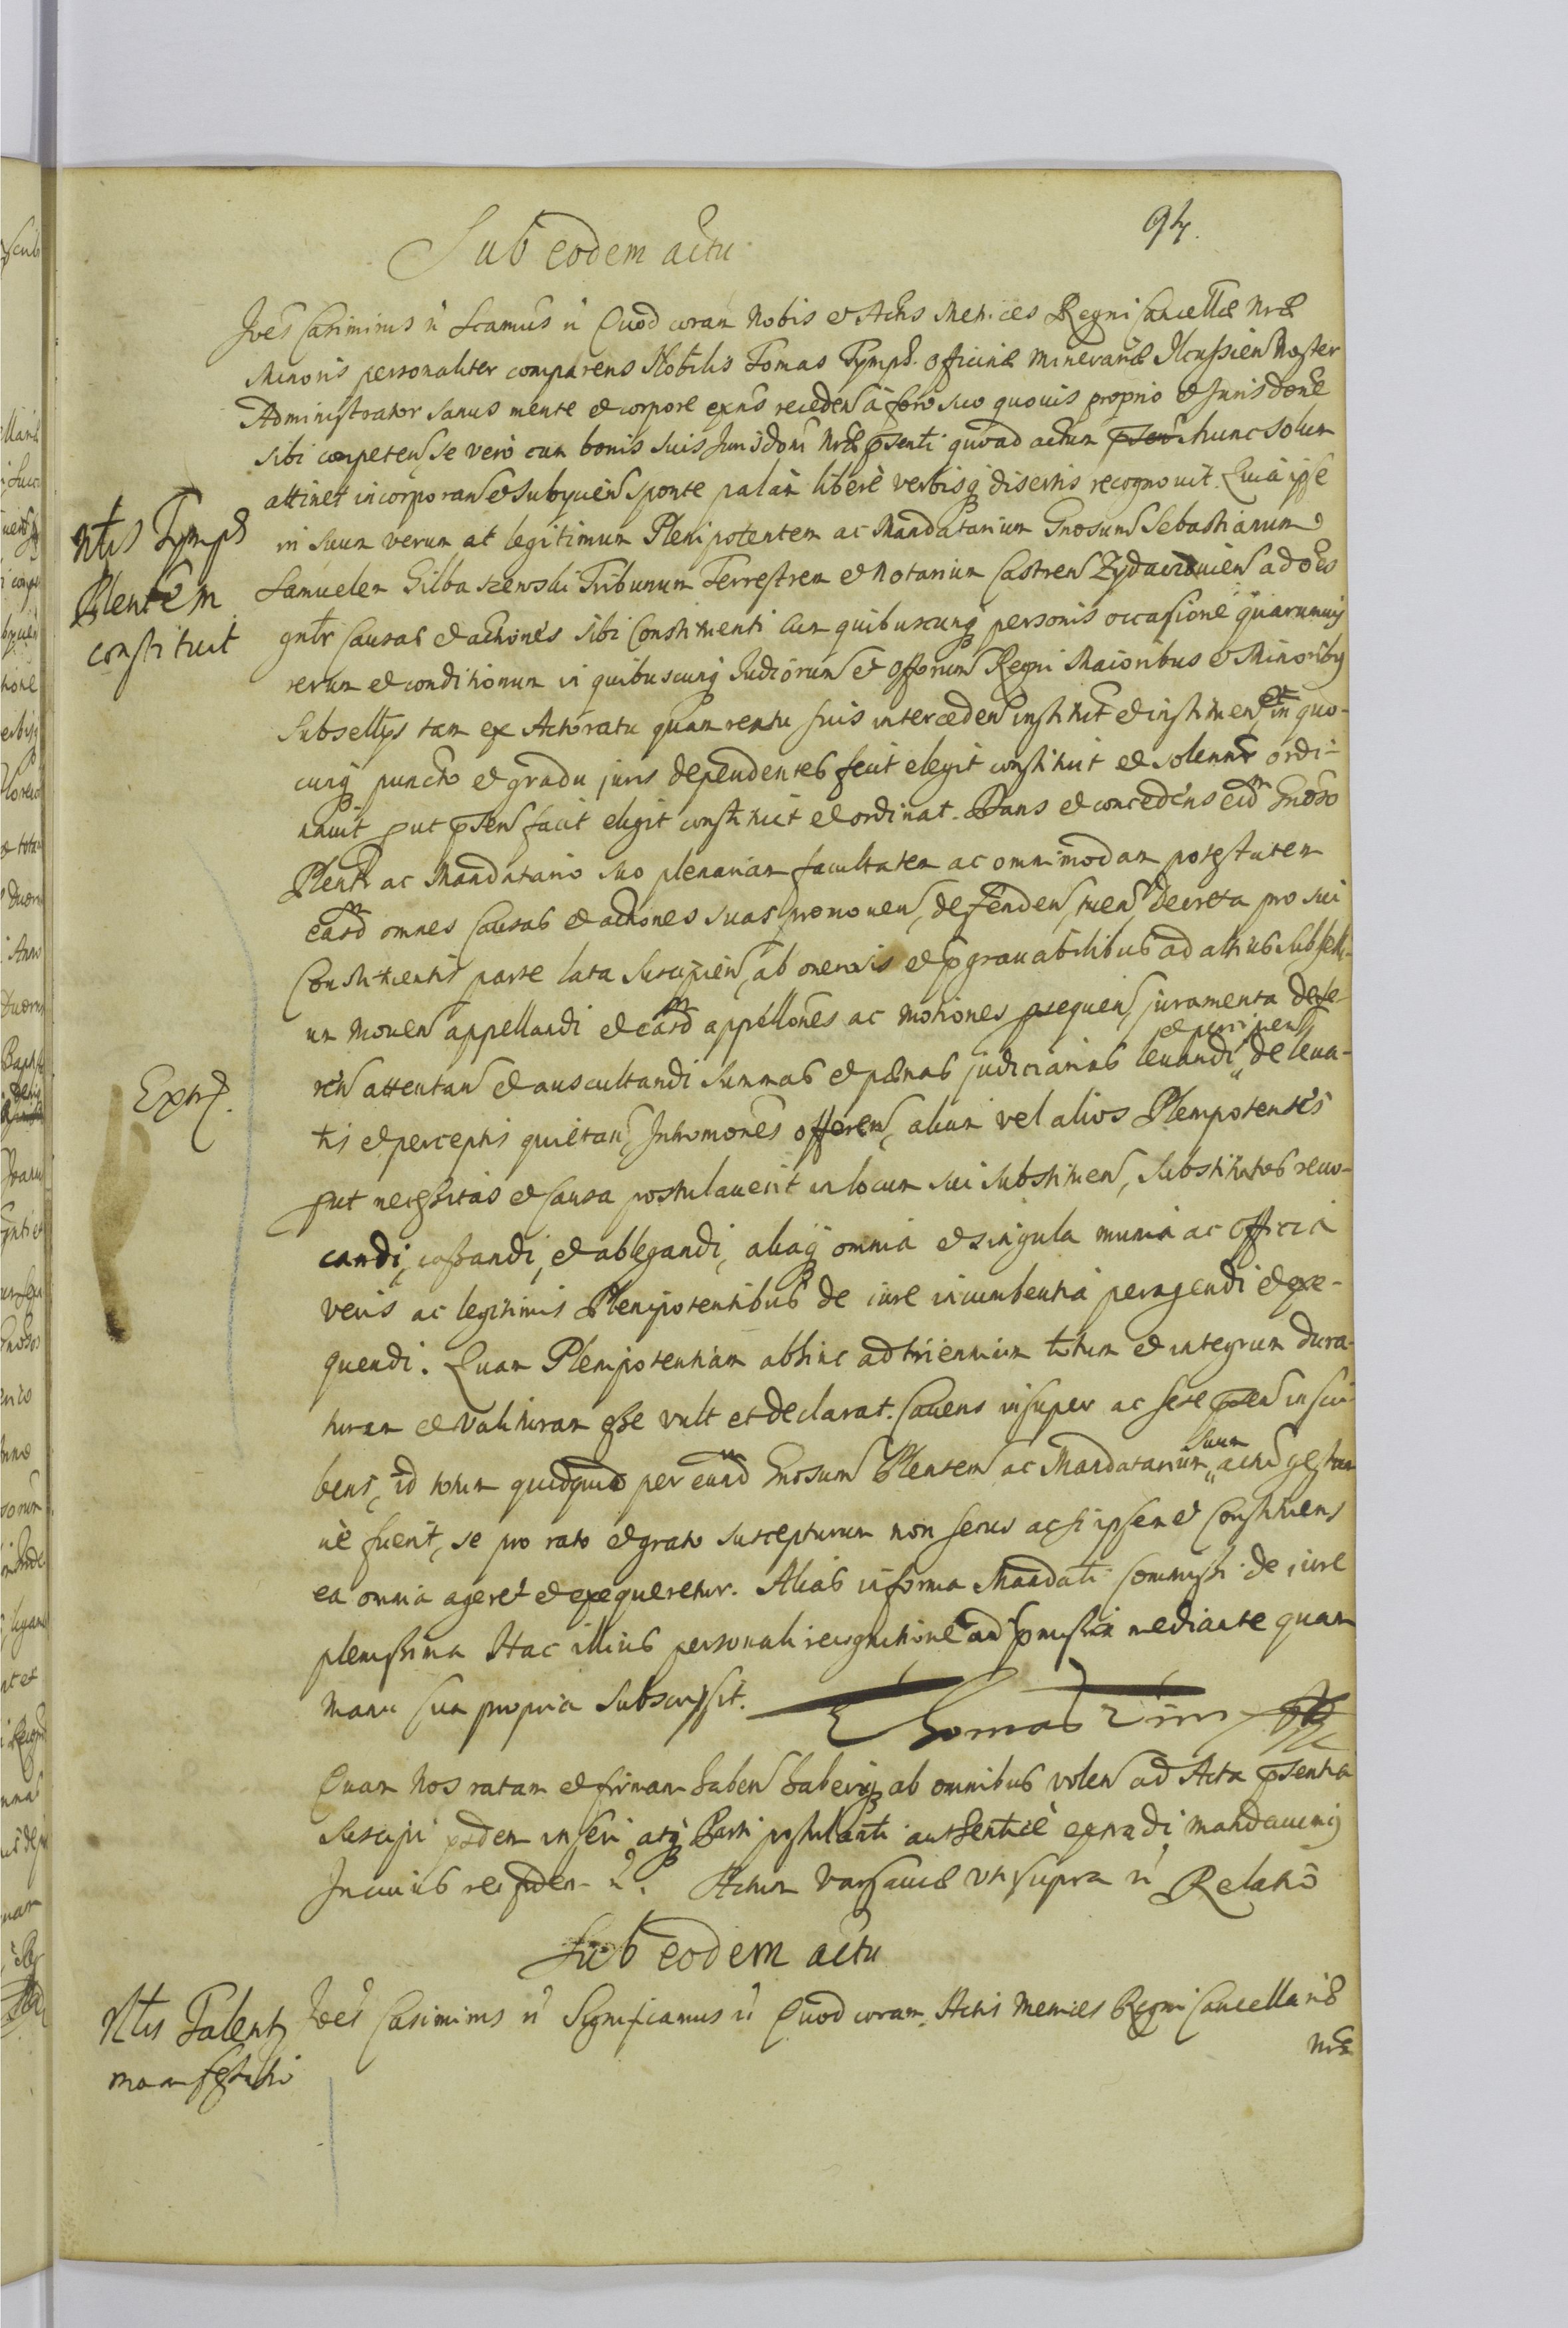 94.
Sub eodem actu
Joes Casimirus rc Scamus rc Quod coram Nobis et Actis Metrices Regni Cancellae Nrae
Minoris personaliter comparens Nobilis Tomas Tymph officinae Minerariae Ilcussien Noster
Administrator Sanus mente et corpore exns receden a foro suo quovis proprio et Jurisdone
sibi competen, se vero cum bonis suis Jurisdoni Nrae psenti quoad actum hunc solum
attinet incorporan et subyicien sponte palam libere verbisq disertis recognovit. Quia ipse
in suum verum at legitimum Plenipotentem ac Mandatarium Gnosum Sebastianum
Samuelem Gilbaszewski Tribunum Terrestrem et Notarium Castren Zydacovien ad oes
gnlr Causas et actiones sibi Constituenti cum quibuscunq personis occasione quarumvis
rerum et conditionum in quibuscunq Judiciorum et Offorum Regni Maioribus et Minoribq
Subsellys tam ex Actoratu quam reatu suis interceden institut et instituen et in quo-
cunq puncto et gradu juris dependentes fecit elegit constituit et solennr ordi-
navit put psen facit eligit constituit et ordinat. Dans et concedens eidm Gnoso
Plenti ac Mandatario suo plenariam facultatem ac omnimodam potestatem
easdm omnes Causas et actiones suas promoven, defenden, tuen, Decreta pro sui
Constituentis parte lata suscipien, ab onerosis et pgravabilibus ad altius subselli-
um Moven appellandi et easdm appellones ac motiones psequen, juramenta defe-
ren attentan et auscultandi Summas et paenas judiciarias levandi, et percipiendi de leva-
tis et perceptis quietan, Intromones offeren, alium vel alios Plenipotentes
put necessitas et Causa postulaverit in locum sui substituen, substitutos revo-
candi, cassandi, et ablegandi, aliaq omnia et singula munia ac Officia
veris ac legitimis Plenipotentibus de iure incumbentia peragendi et exe-
quendi. Quam Plenipotentiam abhinc ad triennium totum et integrum dura-
turam et valituram esse vult et declarat. Cavens insuper ac sese psen inscri-
bens, id totum quidquid per eundm Gnosum Plentem ac Mandatarium suum actu gestum
ve fuerit, se pro rato et grato suscepturum non secus ac si ipsemet Constituens
ea omnia ageret et exequeretur. Alias in forma Mandati Commissi de iure
plenissima Hac illius personali recognitione ad pmissa mediante quam
manu sua propria subscripsit. Thomas Tim
Quam Nos ratam et firmam haben haberiq ab omnibus volen ad Acta psentia
Suscipi eodem inseri atq Parti postulanti authentice extradi mandavimq
In cuius rei fidem rc. Actum Varsaviae ut supra rc Relatio
Sub eodem actu
Joes Casimirus rc Significamus rc Quod coram Actis Metrices Regni Cancellariae
nrae
Nlis Tymph
Plentem
constituit
Extr.
Nlis Talent
manifestatio